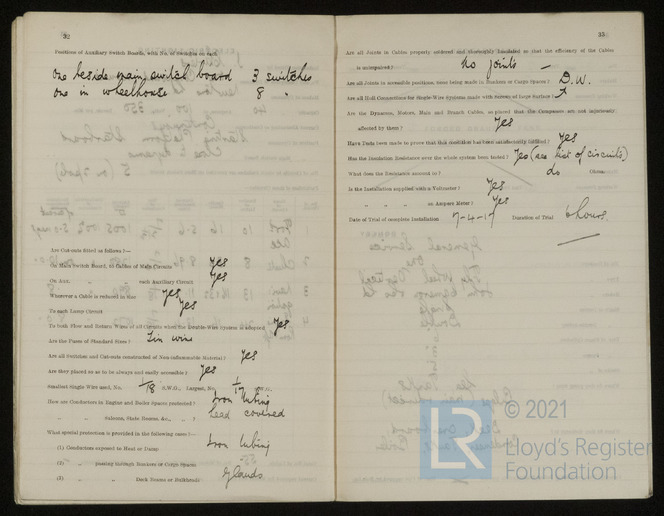 32
Positions of Auxiliary Switch Boards, with No. of Switches on each
One beside main switch board 3 switches
One in wheelhouse 8 "
Are Cut-outs fitted as follows?—
On Main Switch Board, to Cables of Main Circuits yes
On Aux. " " each Auxiliary Circuit yes
Wherever a Cable is reduced in size yes
To each Lamp Circuit yes
To both Flow and Return Wires of all Circuits when the Double-Wire System is adopted yes
Are the Fuses of Standard Sizes? Tin wire
Are all Switches and Cut-outs constructed of Non-inflammable Material? yes
Are they placed so as to be always and easily accessible? yes
Smallest Single Wire used, No. 1/18 S.W.G., Largest, No. S.W.G.
How are Conductors in Engine and Boiler Spaces protected? Iron tubing
" " Saloons, State Rooms, &c., " ? Lead covered
What special protection is provided in the following cases?—
(1) Conductors exposed to Heat or Damp Iron tubing
(2) " passing through Bunkers or Cargo Spaces
(3) " " Deck Beams or Bulkheads Glands
33
Are all Joints in Cables properly soldered and thoroughly insulated so that the efficiency of the Cables
is unimpaired? No joints —
Are all Joints in accessible positions, none being made in Bunkers or Cargo Spaces? D.W.
Are all Hull Connections for Single-Wire Systems made with Screws of large Surface?
Are the Dynamos, Motors, Main and Branch Cables, so placed that the Compasses are not injuriously
affected by them? yes
Have Tests been made to prove that this condition has been satisfactorily fulfilled? yes
Has the Insulation Resistance over the whole system been tested? yes (see list of circuits)
What does the Resistance amount to? do Ohms.
Is the Installation supplied with a Voltmeter? yes
" " " an Ampere Meter? yes
Date of Trial of complete Installation 7-4-17 Duration of Trial 6 hours.
LR
© 2021
Lloyd's Register
Foundation